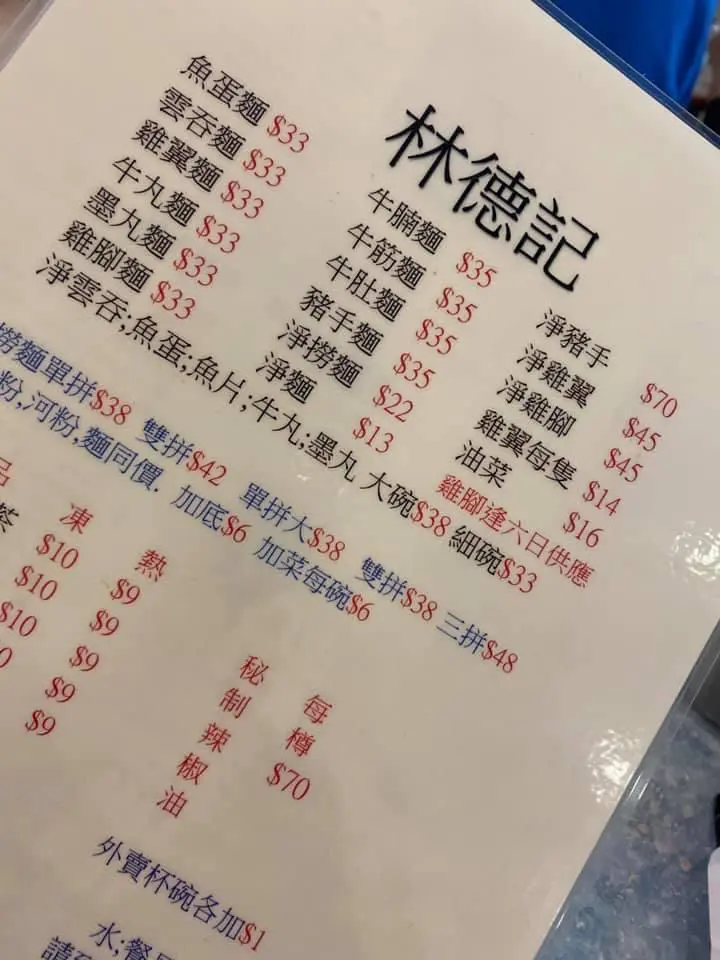 林德記
魚蛋麵 $33
雲吞麵 $33
雞翼麵 $33
牛丸麵 $33
墨丸麵 $33
雞腳麵 $33
牛腩麵 $35
牛筋麵 $35
牛肚麵 $35
豬手麵 $35
淨撈麵 $22
淨麵 $13
淨豬手 $70
淨雞翼 $45
淨雞腳 $45
雞翼每隻 $14
油菜 $16
雞腳逢六日供應
淨雲吞;魚蛋;魚片;牛丸;墨丸 大碗$38 細碗$33
撈麵單拼$38 雙拼$42 單拼大$38 雙拼$38 三拼$48
粉,河粉,麵同價. 加底$6 加菜每碗$6
凍 熱
茶 $10 $9
$10 $9
$10 $9
$9
$9
秘制辣椒油
每樽 $70
外賣杯碗各加$1
水;餐
請